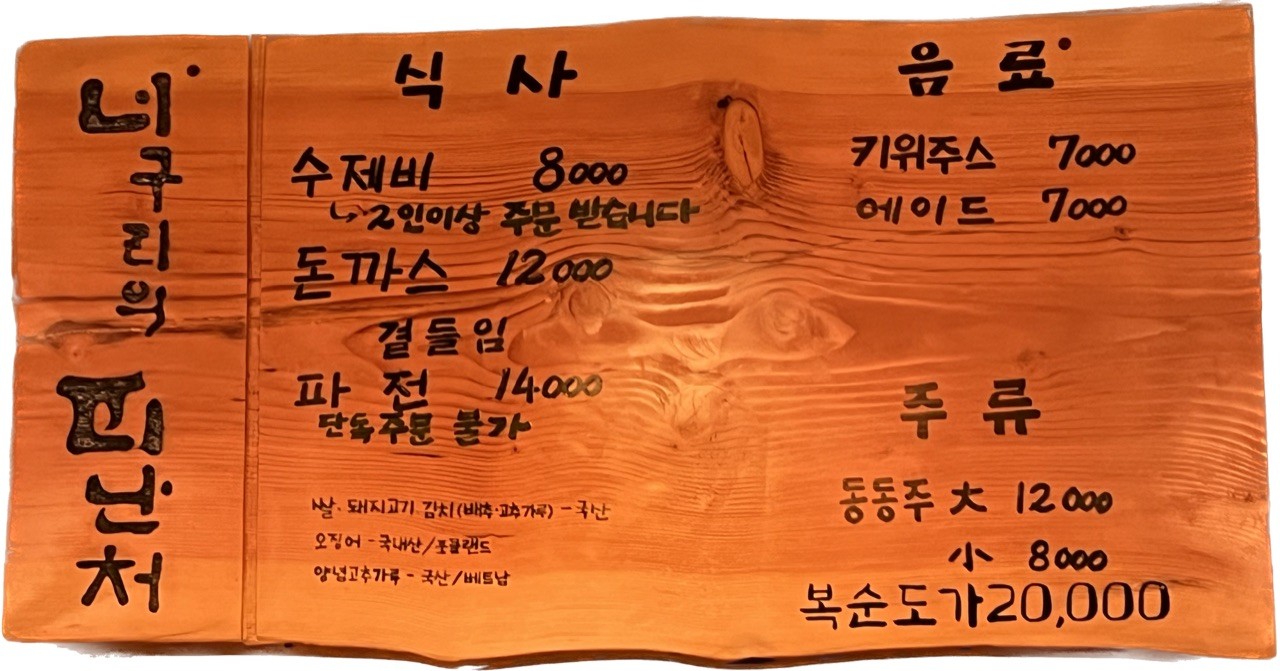 너구리의
피난처
식사
수제비 8000
↳ 2인이상 주문 받습니다
돈까스 12000
곁들임
파전 14.000
단독주문 불가
쌀. 돼지고기 김치(배추·고추가루) - 국산
오징어 - 국내산/포클랜드
양념고추가루 - 국산/베트남
음료
키위주스 7000
에이드 7000
주류
동동주 大 12000
小 8000
복순도가20,000